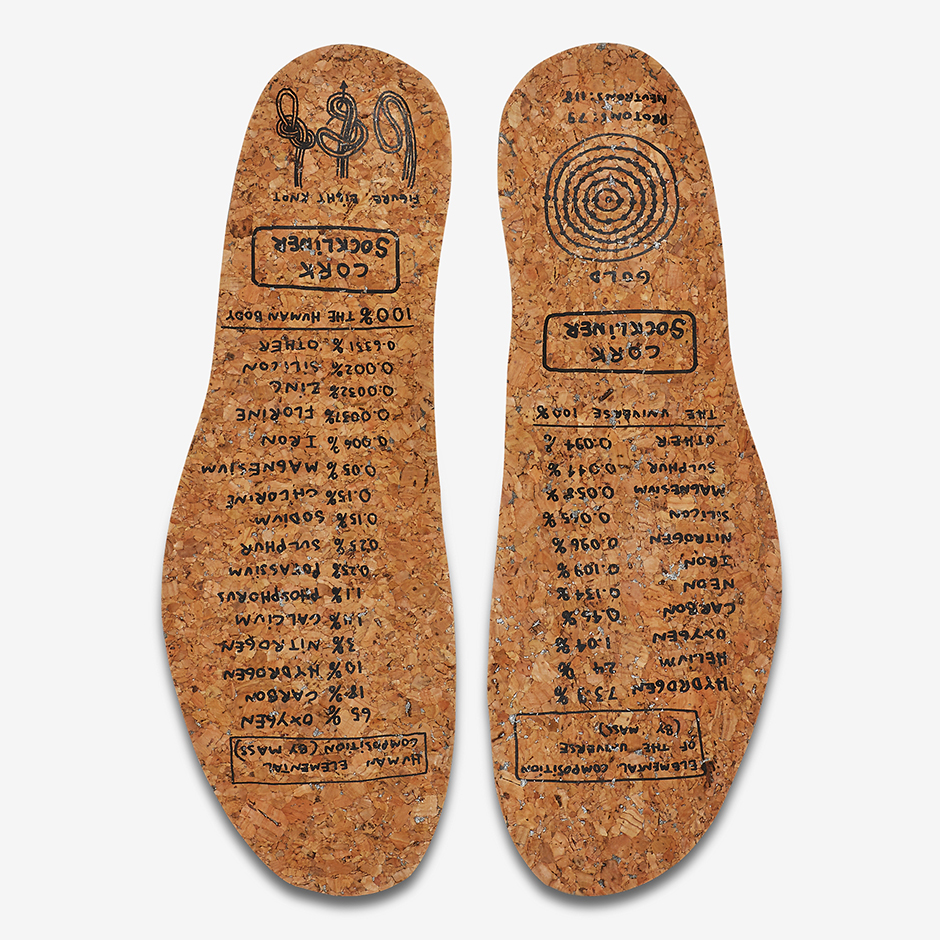 ELEMENTAL COMPOSITION
OF THE UNIVERSE
(BY MASS)
HYDROGEN 73.9%
HELIUM 24 %
OXYGEN 1.04%
CARBON 0.45%
NEON 0.134%
IRON 0.109%
NITROGEN 0.096%
SILICON 0.065%
MAGNESIUM 0.058%
SULPHUR 0.044%
OTHER 0.094%
THE UNIVERSE 100%
CORK
SOCKLINER
GOLD
PROTONS:79
NEUTRONS:118
HUMAN ELEMENTAL
COMPOSITION (BY MASS)
65 % OXYGEN
18% CARBON
10% HYDROGEN
3% NITROGEN
1.4% CALCIUM
1.1% PHOSPHORUS
0.25% POTASSIUM
025% SULPHUR
0.15% SODIUM
0.15% CHLORINE
0.05% MAGNESIUM
0.006% IRON
0.0037% FLORINE
0.0032% ZINC
0.002% SILICON
0.6351% OTHER
100% THE HUMAN BODY
CORK
SOCKLINER
FIGURE EIGHT KNOT